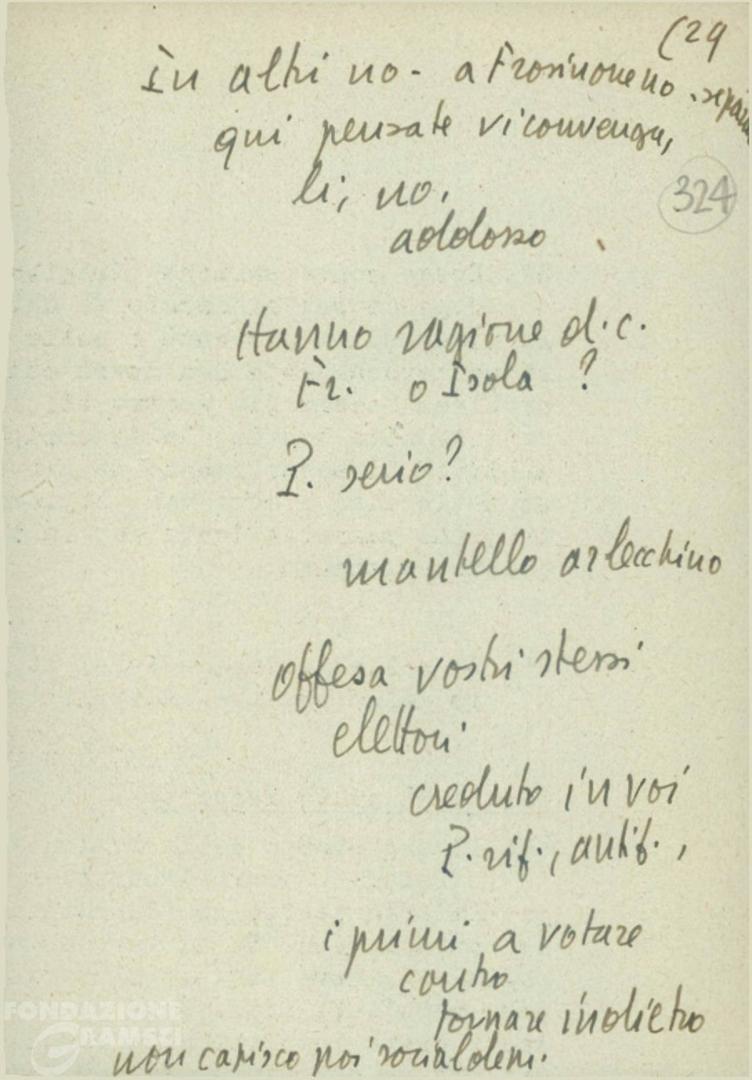 (29
In altri no - a Frosinone no
qui pensate vi convenga,
lì, no,
addosso
324
Hanno ragione d.c.
Fr. o Isola ?
P. serio?
mantello arlecchino
offesa vostri stessi
elettori
creduto in voi
P. rif., antif.,
i primi a votare
contro
tornare indietro
non capisco poi socialdem.
FONDAZIONE
GRAMSCI